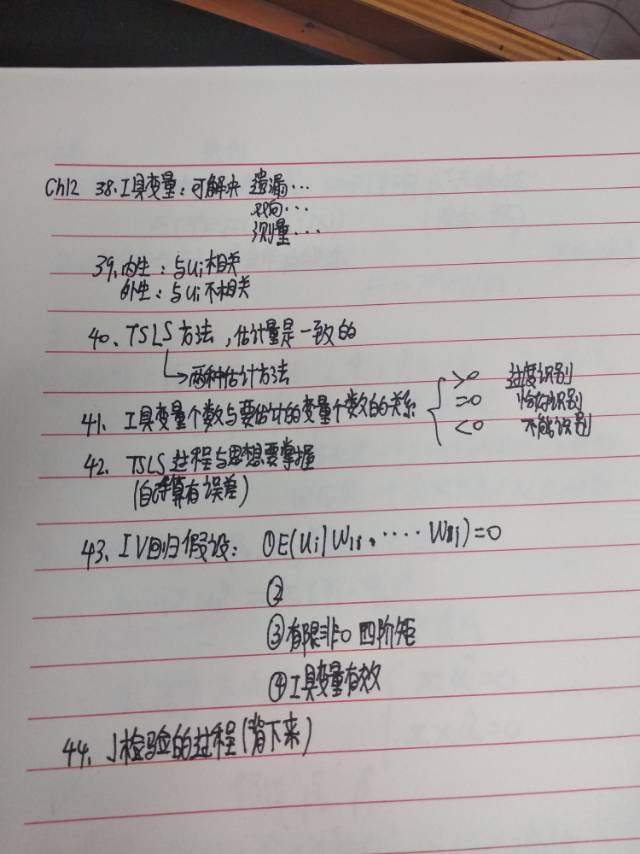 Ch12 38. 工具变量：可解决 遗漏…
双向…
测量…
39. 内生：与ui相关
外生：与ui不相关
40、TSLS方法，估计量是一致的
↳两种估计方法
41、工具变量个数与要估计的变量个数的关系 { >0 过度识别
=0 恰好识别
<0 不能识别
42、TSLS过程与思想要掌握
(自己算有误差)
43、IV回归假设：①E(ui|W1i,····Wri)=0
②
③有限非0四阶矩
④工具变量有效
44、J检验的过程(背下来)